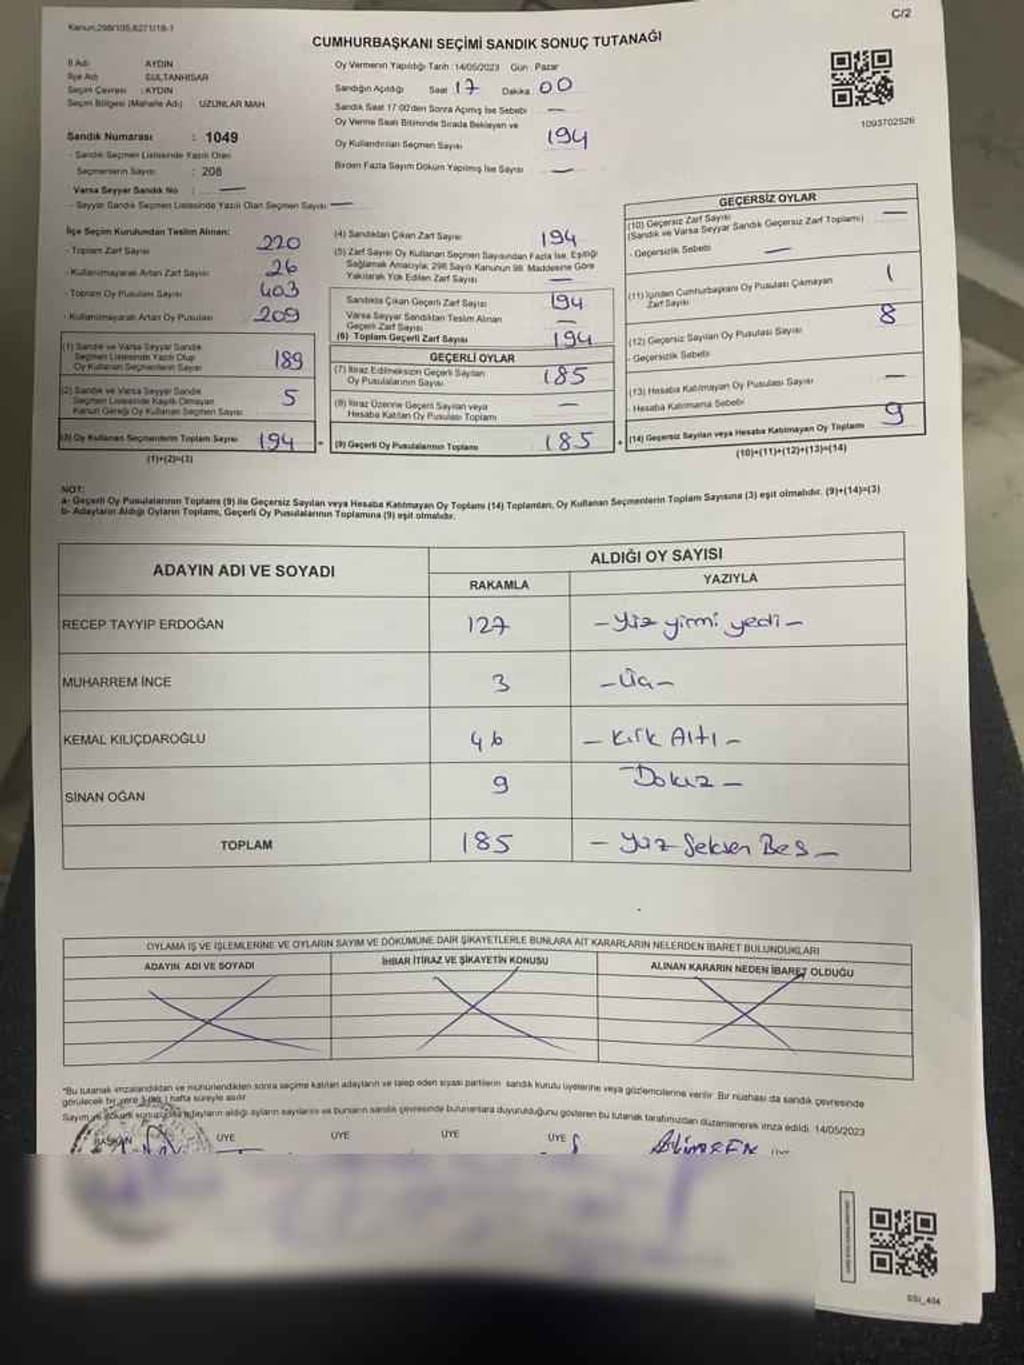 Kanun:298/105,6271/18-1
C/2
CUMHURBAŞKANI SEÇİMİ SANDIK SONUÇ TUTANAĞI
İl Adı AYDIN
İlçe Adı SULTANHİSAR
Seçim Çevresi : AYDIN
Seçim Bölgesi (Mahalle Adı) UZUNLAR MAH
Sandık Numarası : 1049
- Sandık Seçmen Listesinde Yazılı Olan
Seçmenlerin Sayısı : 208
Varsa Seyyar Sandık No : —
- Seyyar Sandık Seçmen Listesinde Yazılı Olan Seçmen Sayısı —
Oy Vermenin Yapıldığı Tarih : 14/05/2023 Gün : Pazar
Sandığın Açıldığı Saat 17 Dakika 00
Sandık Saat 17:00'den Sonra Açılmış İse Sebebi —
Oy Verme Saati Bitiminde Sırada Bekleyen ve
Oy Kullandırılan Seçmen Sayısı 194
Birden Fazla Sayım Döküm Yapılmış İse Sayısı —
1093702526
İlçe Seçim Kurulundan Teslim Alınan:
- Toplam Zarf Sayısı 220
- Kullanılmayarak Artan Zarf Sayısı 26
- Toplam Oy Pusulası Sayısı 403
- Kullanılmayarak Artan Oy Pusulası 209
(1) Sandık ve Varsa Seyyar Sandık
Seçmen Listesinde Yazılı Olup
Oy Kullanan Seçmenlerin Sayısı 189
(2) Sandık ve Varsa Seyyar Sandık
Seçmen Listesinde Kayıtlı Olmayan
Kanun Gereği Oy Kullanan Seçmen Sayısı 5
(3) Oy Kullanan Seçmenlerin Toplam Sayısı 194
(1)+(2)=(3)
(4) Sandıktan Çıkan Zarf Sayısı 194
(5) Zarf Sayısı Oy Kullanan Seçmen Sayısından Fazla İse, Eşitliği
Sağlamak Amacıyla, 298 Sayılı Kanunun 98. Maddesine Göre
Yakılarak Yok Edilen Zarf Sayısı —
Sandıkta Çıkan Geçerli Zarf Sayısı 194
Varsa Seyyar Sandıktan Teslim Alınan
Geçerli Zarf Sayısı —
(6) Toplam Geçerli Zarf Sayısı 194
GEÇERLİ OYLAR
(7) İtiraz Edilmeksizin Geçerli Sayılan
Oy Pusulalarının Sayısı 185
(8) İtiraz Üzerine Geçerli Sayılan veya
Hesaba Katılan Oy Pusulası Toplamı —
(9) Geçerli Oy Pusulalarının Toplamı 185
GEÇERSİZ OYLAR
(10) Geçersiz Zarf Sayısı —
(Sandık ve Varsa Seyyar Sandık Geçersiz Zarf Toplamı)
- Geçersizlik Sebebi —
(11) İçinden Cumhurbaşkanı Oy Pusulası Çıkmayan
Zarf Sayısı 1
(12) Geçersiz Sayılan Oy Pusulası Sayısı 8
- Geçersizlik Sebebi
(13) Hesaba Katılmayan Oy Pusulası Sayısı —
- Hesaba Katılmama Sebebi
(14) Geçersiz Sayılan veya Hesaba Katılmayan Oy Toplamı 9
(10)+(11)+(12)+(13)=(14)
NOT:
a- Geçerli Oy Pusulalarının Toplamı (9) ile Geçersiz Sayılan veya Hesaba Katılmayan Oy Toplamı (14) Toplamları, Oy Kullanan Seçmenlerin Toplam Sayısına (3) eşit olmalıdır. (9)+(14)=(3)
b- Adayların Aldığı Oyların Toplamı, Geçerli Oy Pusulalarının Toplamına (9) eşit olmalıdır.
ADAYIN ADI VE SOYADI ALDIĞI OY SAYISI
RAKAMLA YAZIYLA
RECEP TAYYIP ERDOĞAN 127 - Yüz yirmi yedi -
MUHARREM İNCE 3 - Üç -
KEMAL KILIÇDAROĞLU 46 - Kırk Altı -
SİNAN OĞAN 9 - Dokuz -
TOPLAM 185 - Yüz Seksen Beş -
OYLAMA İŞ VE İŞLEMLERİNE VE OYLARIN SAYIM VE DÖKÜMÜNE DAİR ŞİKAYETLERLE BUNLARA AİT KARARLARIN NELERDEN İBARET BULUNDUKLARI
ADAYIN ADI VE SOYADI İHBAR İTİRAZ VE ŞİKAYETİN KONUSU ALINAN KARARIN NEDEN İBARET OLDUĞU
*Bu tutanak imzalandıktan ve mühürlendikten sonra seçime katılan adayların ve talep eden siyasi partilerin sandık kurulu üyelerine veya gözlemcilerine verilir. Bir nüshası da sandık çevresinde
görülecek bir yere bir hafta süreyle asılır.
Sayım ve döküm sonucunda adayların aldığı oyların sayılarını ve bunların sandık çevresinde bulunanlara duyurulduğunu gösteren bu tutanak tarafımızdan düzenlenerek imza edildi. 14/05/2023
BAŞKAN ÜYE ÜYE ÜYE ÜYE ÜYE
SSI_404